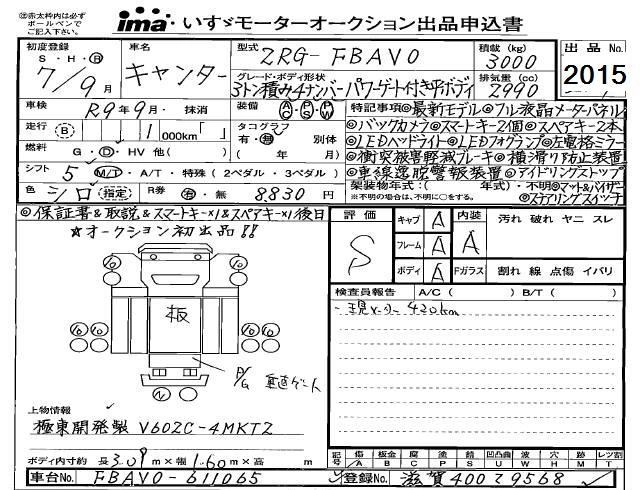 ㊟赤太枠内は必ず
ボールペンで
ご記入下さい。
ima いすゞモーターオークション出品申込書
初度登録 S・H・Ⓡ 7/9月
車名 キャンター
型式 2RG-FBAV0
積載(kg) 3000
出品No. 2015
グレード・ボディ形状 3トン積み4ナンバーパワーゲート付き平ボディ
排気量(cc) 2990
車検 R9年9月・抹消
装備 AC PS PW
特記事項 ◎最新モデル◎フル液晶メーターパネル
走行 (B) 1 000km「 」
タコグラフ 有・無 別体 ( 年 月)
◎バックカメラ◎スマートキー2個◎スペアキー2本
◎LEDヘッドライト◎LEDフォグランプ◎左電格ミラー
燃料 G・D・HV 他( )
◎衝突被害軽減ブレーキ◎横滑り防止装置
シフト 5 M/T・A/T・特殊(2ペダル・3ペダル)
◎車線逸脱警報装置◎アイドリングストップ
色 シロ (指定)
R券 有・無 8,830円
架装物年式・( 年式)・不明◎マット&バイザー
※不明の場合は、不明に○をする。 ◎ステアリングスイッチ
◎保証書&取説&スマートキー×1&スペアキー×1後日
☆オークション初出品!!
評価 S
キャブ A
フレーム A
ボディ A
内装 A
Fガラス
汚れ 破れ ヤニ スレ
割れ 線 点傷 イバリ
検査員報告 A/C( ) B/T( )
・現メーター 420km
板
P/G 垂直ゲート
上物情報
極東開発製 V602C-4MKT2
ボディ内寸約 長3.09m×幅1.60m×高 m
記号 傷 A 板金 B 腐 C 塗 P サビ S 凹凸曲 U 波 W 穴 H 跡 M レンズ割 T
車台No. FBAV0-611065
登録No. 滋賀400て9568